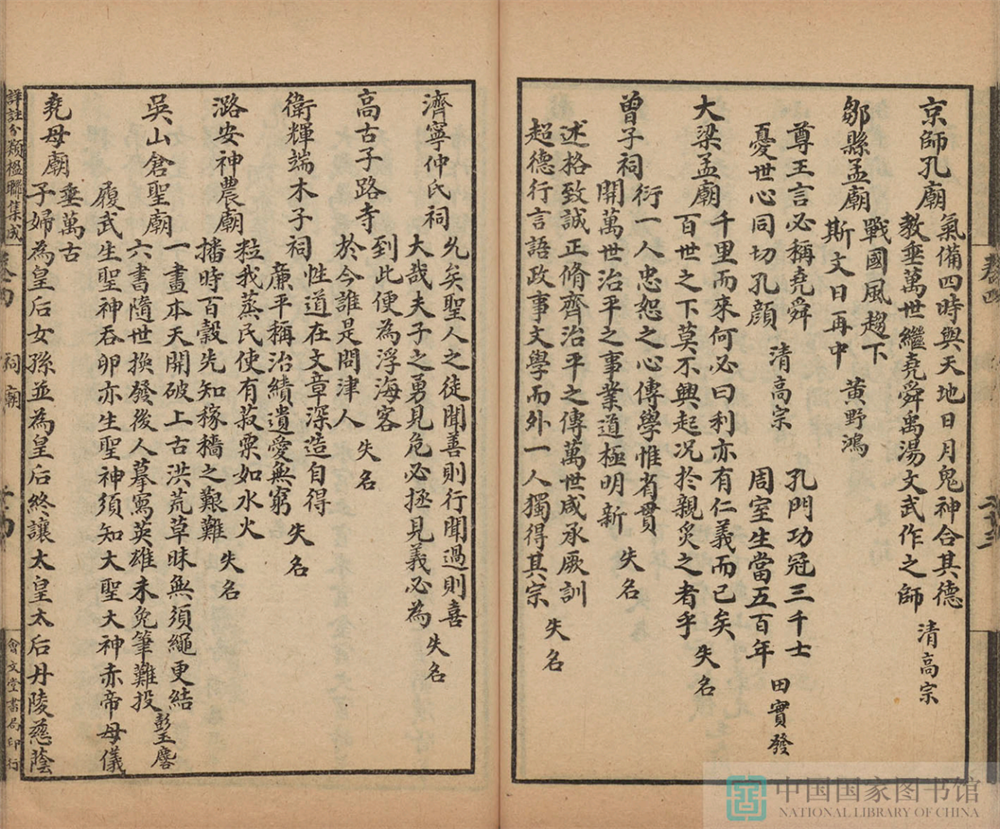 京師孔廟
氣備四時與天地日月鬼神合其德
教垂萬世繼堯舜禹湯文武作之師
清高宗
鄒縣孟廟
戰國風趨下
斯文日再中
黃野鴻
尊王言必稱堯舜
憂世心同切孔顏
清高宗
孔門功冠三千士
周室生當五百年
田實發
大梁孟廟
千里而來何必曰利亦有仁義而已矣
百世之下莫不興起況於親炙之者乎
失名
曾子祠
衍一人忠恕之心傳學惟省貫
開萬世治平之事業道極明新
失名
述格致誠正脩齊治平之傳萬世咸承厥訓
超德行言語政事文學而外一人獨得其宗
失名
濟寧仲氏祠
允矣聖人之徒聞善則行聞過則喜
大哉夫子之勇見危必拯見義必為
失名
高古子路寺
到此便為浮海客
於今誰是問津人
失名
衛輝端木子祠
性道在文章深造自得
廉平稱治績遺愛無窮
失名
潞安神農廟
粒我蒸民使有菽粟如水火
播時百穀先知稼穡之艱難
失名
吳山倉聖廟
一畫本天開破上古洪荒草昧無須繩更結
六書隨世換發後人摹寫英雄未免筆難投
彭玉麐
堯母廟
履武生聖神吞卵亦生聖神須知大聖大神赤帝母儀垂萬古
子婦為皇后女孫並為皇后終讓太皇太后丹陵慈蔭
詳註分類楹聯集成
卷四
祠廟
會文堂書局印行
中国国家图书馆
NATIONAL LIBRARY OF CHINA